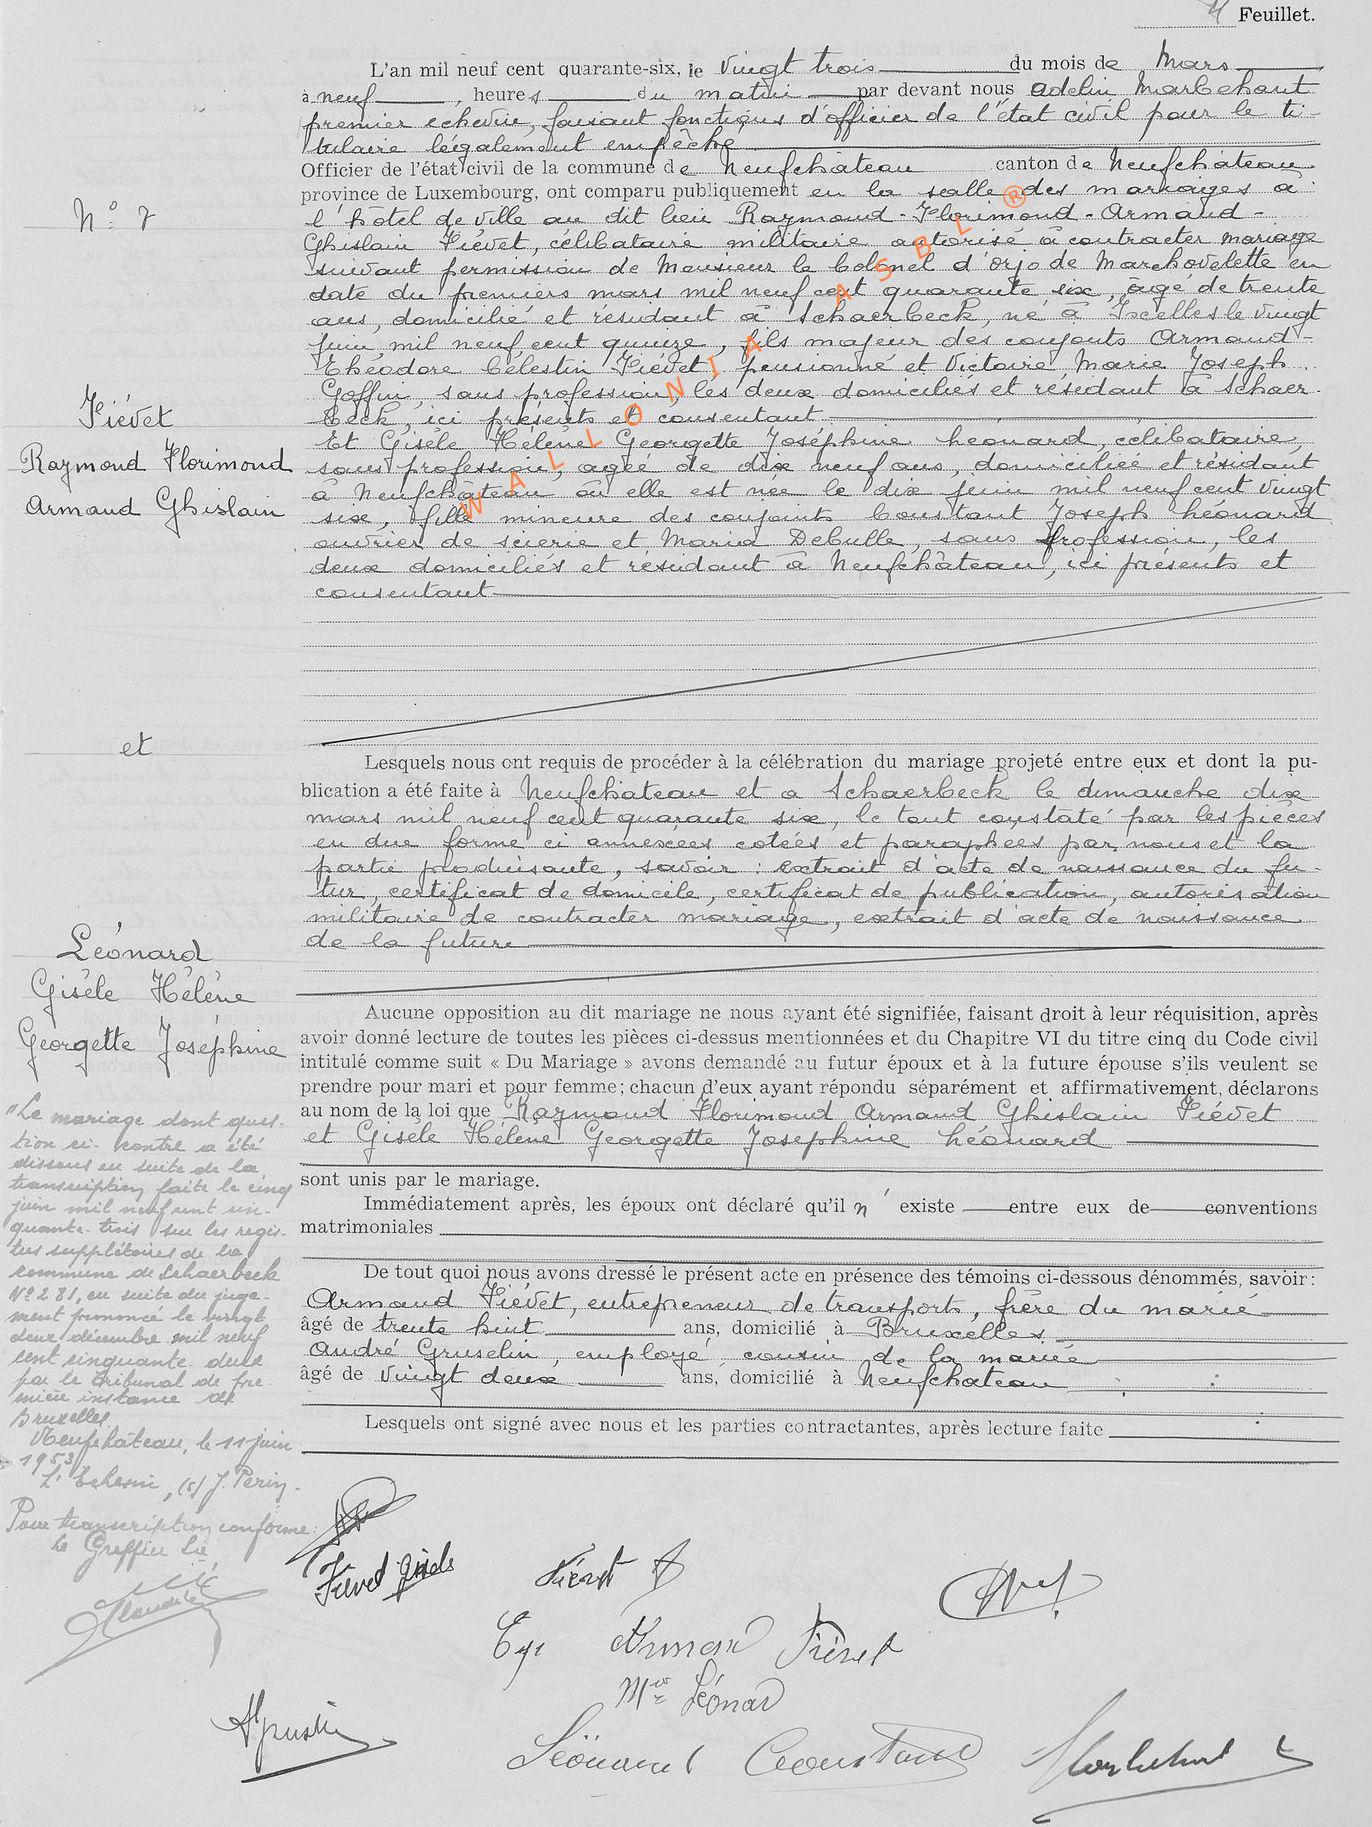 4 Feuillet.
L'an mil neuf cent quarante-six, le vingt trois du mois de Mars
à neuf, heures du matin par devant nous Adelin Marbehant
premier echevin, faisant fonctions d'officier de l'état civil pour le ti-
tulaire légalement empêché
Officier de l'état civil de la commune de Neufchâteau canton de Neufchâteau
province de Luxembourg, ont comparu publiquement en la salle des mariages à
l'hôtel de ville au dit lieu Raymond-Florimond-Armand-
Ghislain Fiévet, célibataire militaire autorisé à contracter mariage
suivant permission de Monsieur le Colonel d'Orjo de Marchovelette en
date du premiers mars mil neuf cent quarante six, âgé de trente
ans, domicilié et résidant à Schaerbeck, né à Ixelles le vingt
juin mil neuf cent quinze, fils majeur des conjoints Armand-
Théodore Célestin Fiévet, pensionné et Victoire Marie Joseph
Goffin, sans profession, les deux domiciliés et résidant à Schaer-
beck, ici présents et consentant
Et Gisèle Hélène Georgette Joséphine Léonard, célibataire
sans profession, agée de dix neuf ans, domiciliée et résidant
à Neufchâteau où elle est née le dix juin mil neuf cent vingt
six, fille mineure des conjoints Constant Joseph Léonard
ouvrier de scierie et Maria Debulle, sans profession, les
deux domiciliés et résidant à Neufchâteau, ici présents et
consentant
Lesquels nous ont requis de procéder à la célébration du mariage projeté entre eux et dont la pu-
blication a été faite à Neufchâteau et a Schaerbeck le dimanche dix
mars mil neuf cent quarante six, le tout constaté par les pièces
en due forme ci annexées cotées et paraphées par nous et la
partie produisante, savoir : extrait d'acte de naissance du fu-
tur, certificat de domicile, certificat de publication, autorisation
militaire de contracter mariage, extrait d'acte de naissance
de la future
Aucune opposition au dit mariage ne nous ayant été signifiée, faisant droit à leur réquisition, après
avoir donné lecture de toutes les pièces ci-dessus mentionnées et du Chapitre VI du titre cinq du Code civil
intitulé comme suit « Du Mariage » avons demandé au futur époux et à la future épouse s'ils veulent se
prendre pour mari et pour femme; chacun d'eux ayant répondu séparément et affirmativement, déclarons
au nom de la loi que Raymond Florimond Armand Ghislain Fiévet
et Gisèle Hélène Georgette Joséphine Léonard
sont unis par le mariage.
Immédiatement après, les époux ont déclaré qu'il n'existe entre eux de conventions
matrimoniales
De tout quoi nous avons dressé le présent acte en présence des témoins ci-dessous dénommés, savoir:
Armand Fiévet, entrepreneur de transports, frère du marié
âgé de trente huit ans, domicilié à Bruxelles
André Gruselin, employé, cousin de la mariée
âgé de vingt deux ans, domicilié à Neufchâteau
Lesquels ont signé avec nous et les parties contractantes, après lecture faite
N° 7
Fiévet
Raymond Florimond
Armand Ghislain
et
Léonard
Gisèle Hélène
Georgette Joséphine
"Le mariage dont ques-
tion ci-contre a été
dissous en suite de la
transcription faite le cinq
juin mil neuf cent cin-
quante-trois sur les regis-
tres supplétoires de la
commune de Schaerbeek
N° 281, en suite du juge-
ment prononcé le vingt
deux décembre mil neuf
cent cinquante deux
par le tribunal de pre-
mière instance de
Bruxelles.
Neufchâteau, le 11 juin
1953
L'Echevin, (s) J. Perin.
Pour transcription conforme:
Le Greffier
Fievet Gisèle
Fiévet A
Armand Fiévet
Léonard
Léonard Constant
WALLONIA ASBL ®